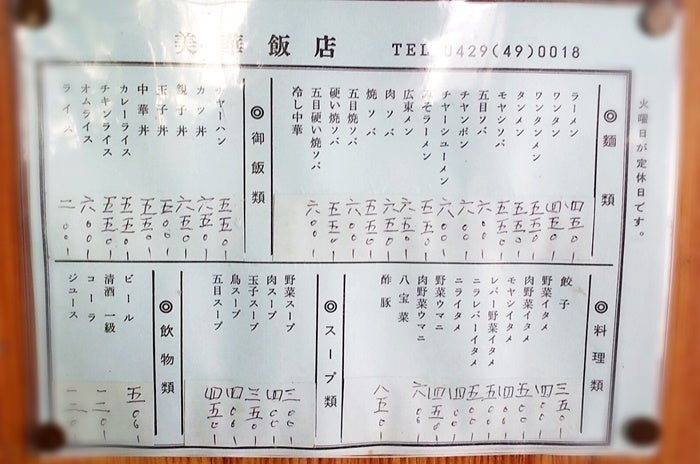 美華飯店 TEL 0429(49)0018
火曜日が定休日です。
◎麺類
ラーメン 四五〇
ワンタン 四五〇
ワンタンメン 五五〇
タンメン 五五〇
モヤシソバ 五五〇
五目ソバ 六〇〇
チャンポン 六〇〇
チャーシューメン 六〇〇
みそラーメン 五五〇
広東メン 六五〇
肉ソバ 六〇〇
焼ソバ 五五〇
五目焼ソバ 六〇〇
硬い焼ソバ 五五〇
五目硬い焼ソバ 六〇〇
冷し中華
◎御飯類
チャーハン 五五〇
カツ丼 六五〇
親子丼 六五〇
玉子丼 五〇〇
中華丼 五五〇
カレーライス 五五〇
チキンライス 五五〇
オムライス 六〇〇
ライス 二〇〇
◎料理類
餃子 三五〇
野菜イタメ 四〇〇
肉野菜イタメ 五〇〇
モヤシイタメ 四〇〇
レバー野菜イタメ 五〇〇
ニラレバーイタメ 五〇〇
ニライタメ 四〇〇
野菜ウマニ 四五〇
肉野菜ウマニ 六〇〇
八宝菜
酢豚 八五〇
◎スープ類
野菜スープ 三〇〇
肉スープ 四〇〇
玉子スープ 三五〇
鳥スープ 四〇〇
五目スープ 四五〇
◎飲物類
ビール 五〇〇
清酒 一級
コーラ
ジュース